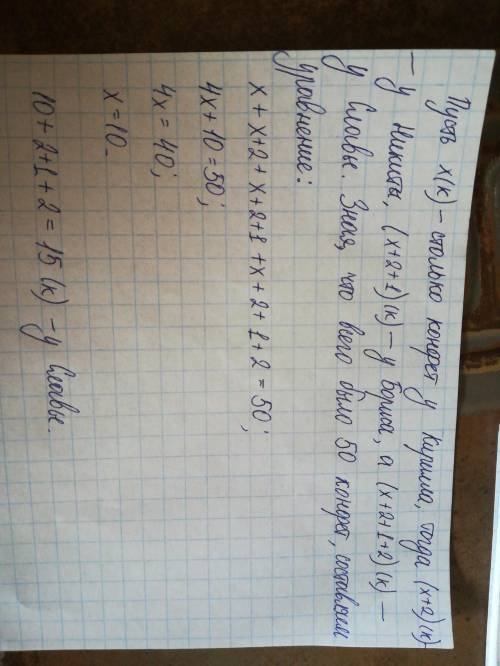 Пусть x(к) - столько конфет у Кирилла, тогда (x+2)(к)
- у Никиты, (x+2+1)(к) - у Бориса, а (x+2+1+2)(к) -
у Славы. Зная, что всего было 50 конфет, составляем
уравнение:
x + x+2 + x+2+1 + x+2+1+2 = 50;
4x+10=50;
4x = 40;
x=10.
10+2+1+2=15 (к) - у Славы.